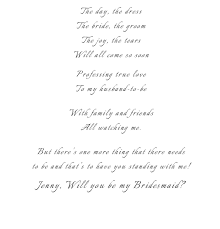 The day, the dress
The bride, the groom
The joy, the tears
Will all come so soon
Professing true love
To my husband-to-be
With family and friends
All watching me.
But there's one more thing that there needs
to be and that's to have you standing with me!
Jenny, Will you be my Bridesmaid?